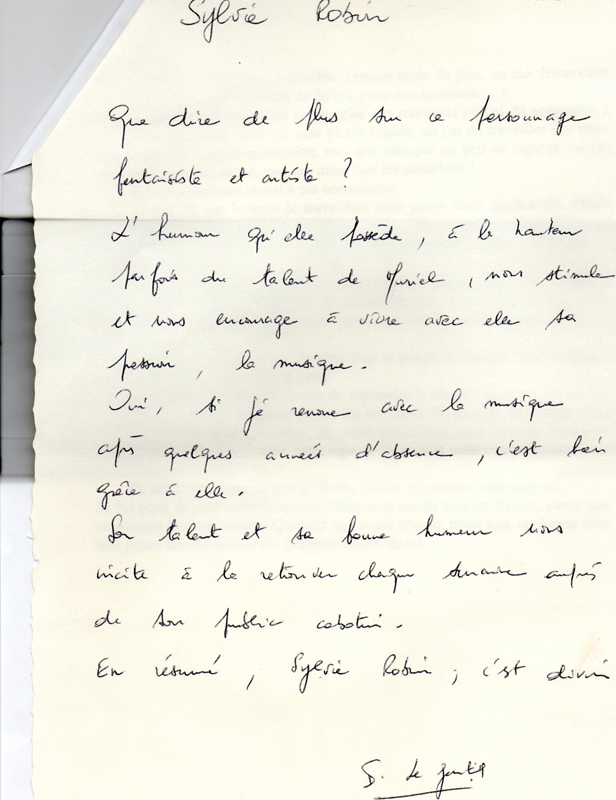 Sylvie Robin
Que dire de plus sur ce personnage
fantaisiste et artiste ?
L'humour qu'elle possède, à la hauteur
parfois du talent de Muriel, nous stimule
et nous encourage à vivre avec elle sa
passion, la musique.
Oui, si je renoue avec la musique
après quelques années d'absence, c'est bien
grâce à elle.
Son talent et sa bonne humeur nous
incite à la retrouver chaque semaine auprès
de son public cabotin.
En résumé, Sylvie Robin ; c'est divin
S. Le Gentil